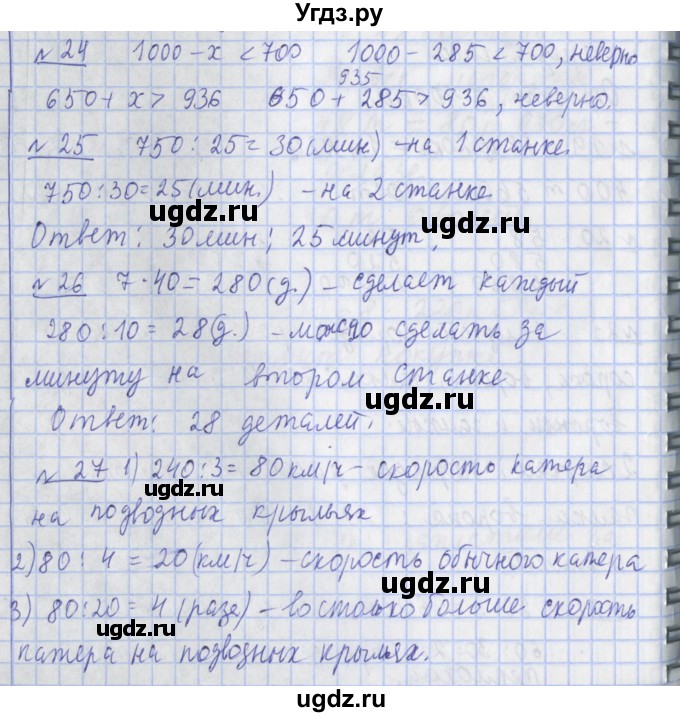 Угдз.ру
№ 24 1000 - x < 700 1000 - 285 < 700, неверно
935
650 + x > 936 650 + 285 > 936, неверно.
№ 25 750 : 25 = 30 (мин) - на 1 станке.
750 : 30 = 25 (мин.) - на 2 станке
ugdz.ru ugdz.ru
Ответ: 30 мин; 25 минут.
№ 26 7 · 40 = 280 (д.) - сделает каждый
280 : 10 = 28 (д.) - можно сделать за
ugdz.ru
минуту на втором станке
ugdz.ru
Ответ: 28 деталей.
№ 27 1) 240 : 3 = 80 км/ч - скорость катера
ugdz.ru
на подводных крыльях
2) 80 : 4 = 20 (км/ч) - скорость обычного катера
ugdz.ru
3) 80 : 20 = 4 (раза) - во столько больше скорость
ugdz.ru
катера на подводных крыльях.
ugdz.ru